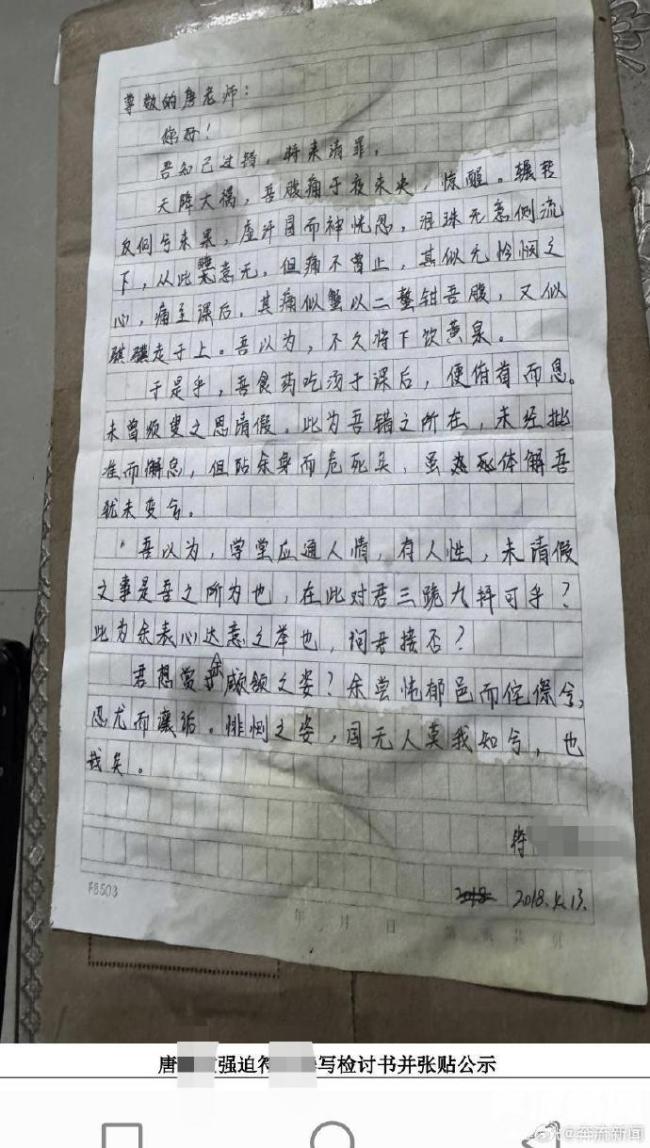 尊敬的唐老师：
您好！
吾知己过错，将来请罪，
天降大祸，吾腹痛于夜未央，惊醒。辗转
反侧兮未果，虚汗冒而神恍忽，泪珠无意侧流
下，从此意无，但痛不曾止，其似无怜悯之
心，痛至课后，其痛似蟹以二螯钳吾腹，又似
骐骥走于上。吾以为，不久将下饮黄泉。
于是乎，吾食药吃汤于课后，便俯首而息。
未曾须臾之思请假，此为吾错之所在，未经批
准而懈怠，但阽余身而危死矣，虽体解吾
犹未变兮。
吾以为，学堂应通人情，有人性，未请假
之事是吾之所为也，在此对君三跪九拜可乎？
此为余表心达意之举也，问君接否？
君想赏余顑颔之姿？余尝忳郁邑而侘傺兮，
忍尤而攘诟。悱恻之姿，国无人莫我知兮，也
哉矣。
符
2018.
F6503
年 月 日 第 页 共 页
唐 强迫符 写检讨书并张贴公示
@奔流新闻